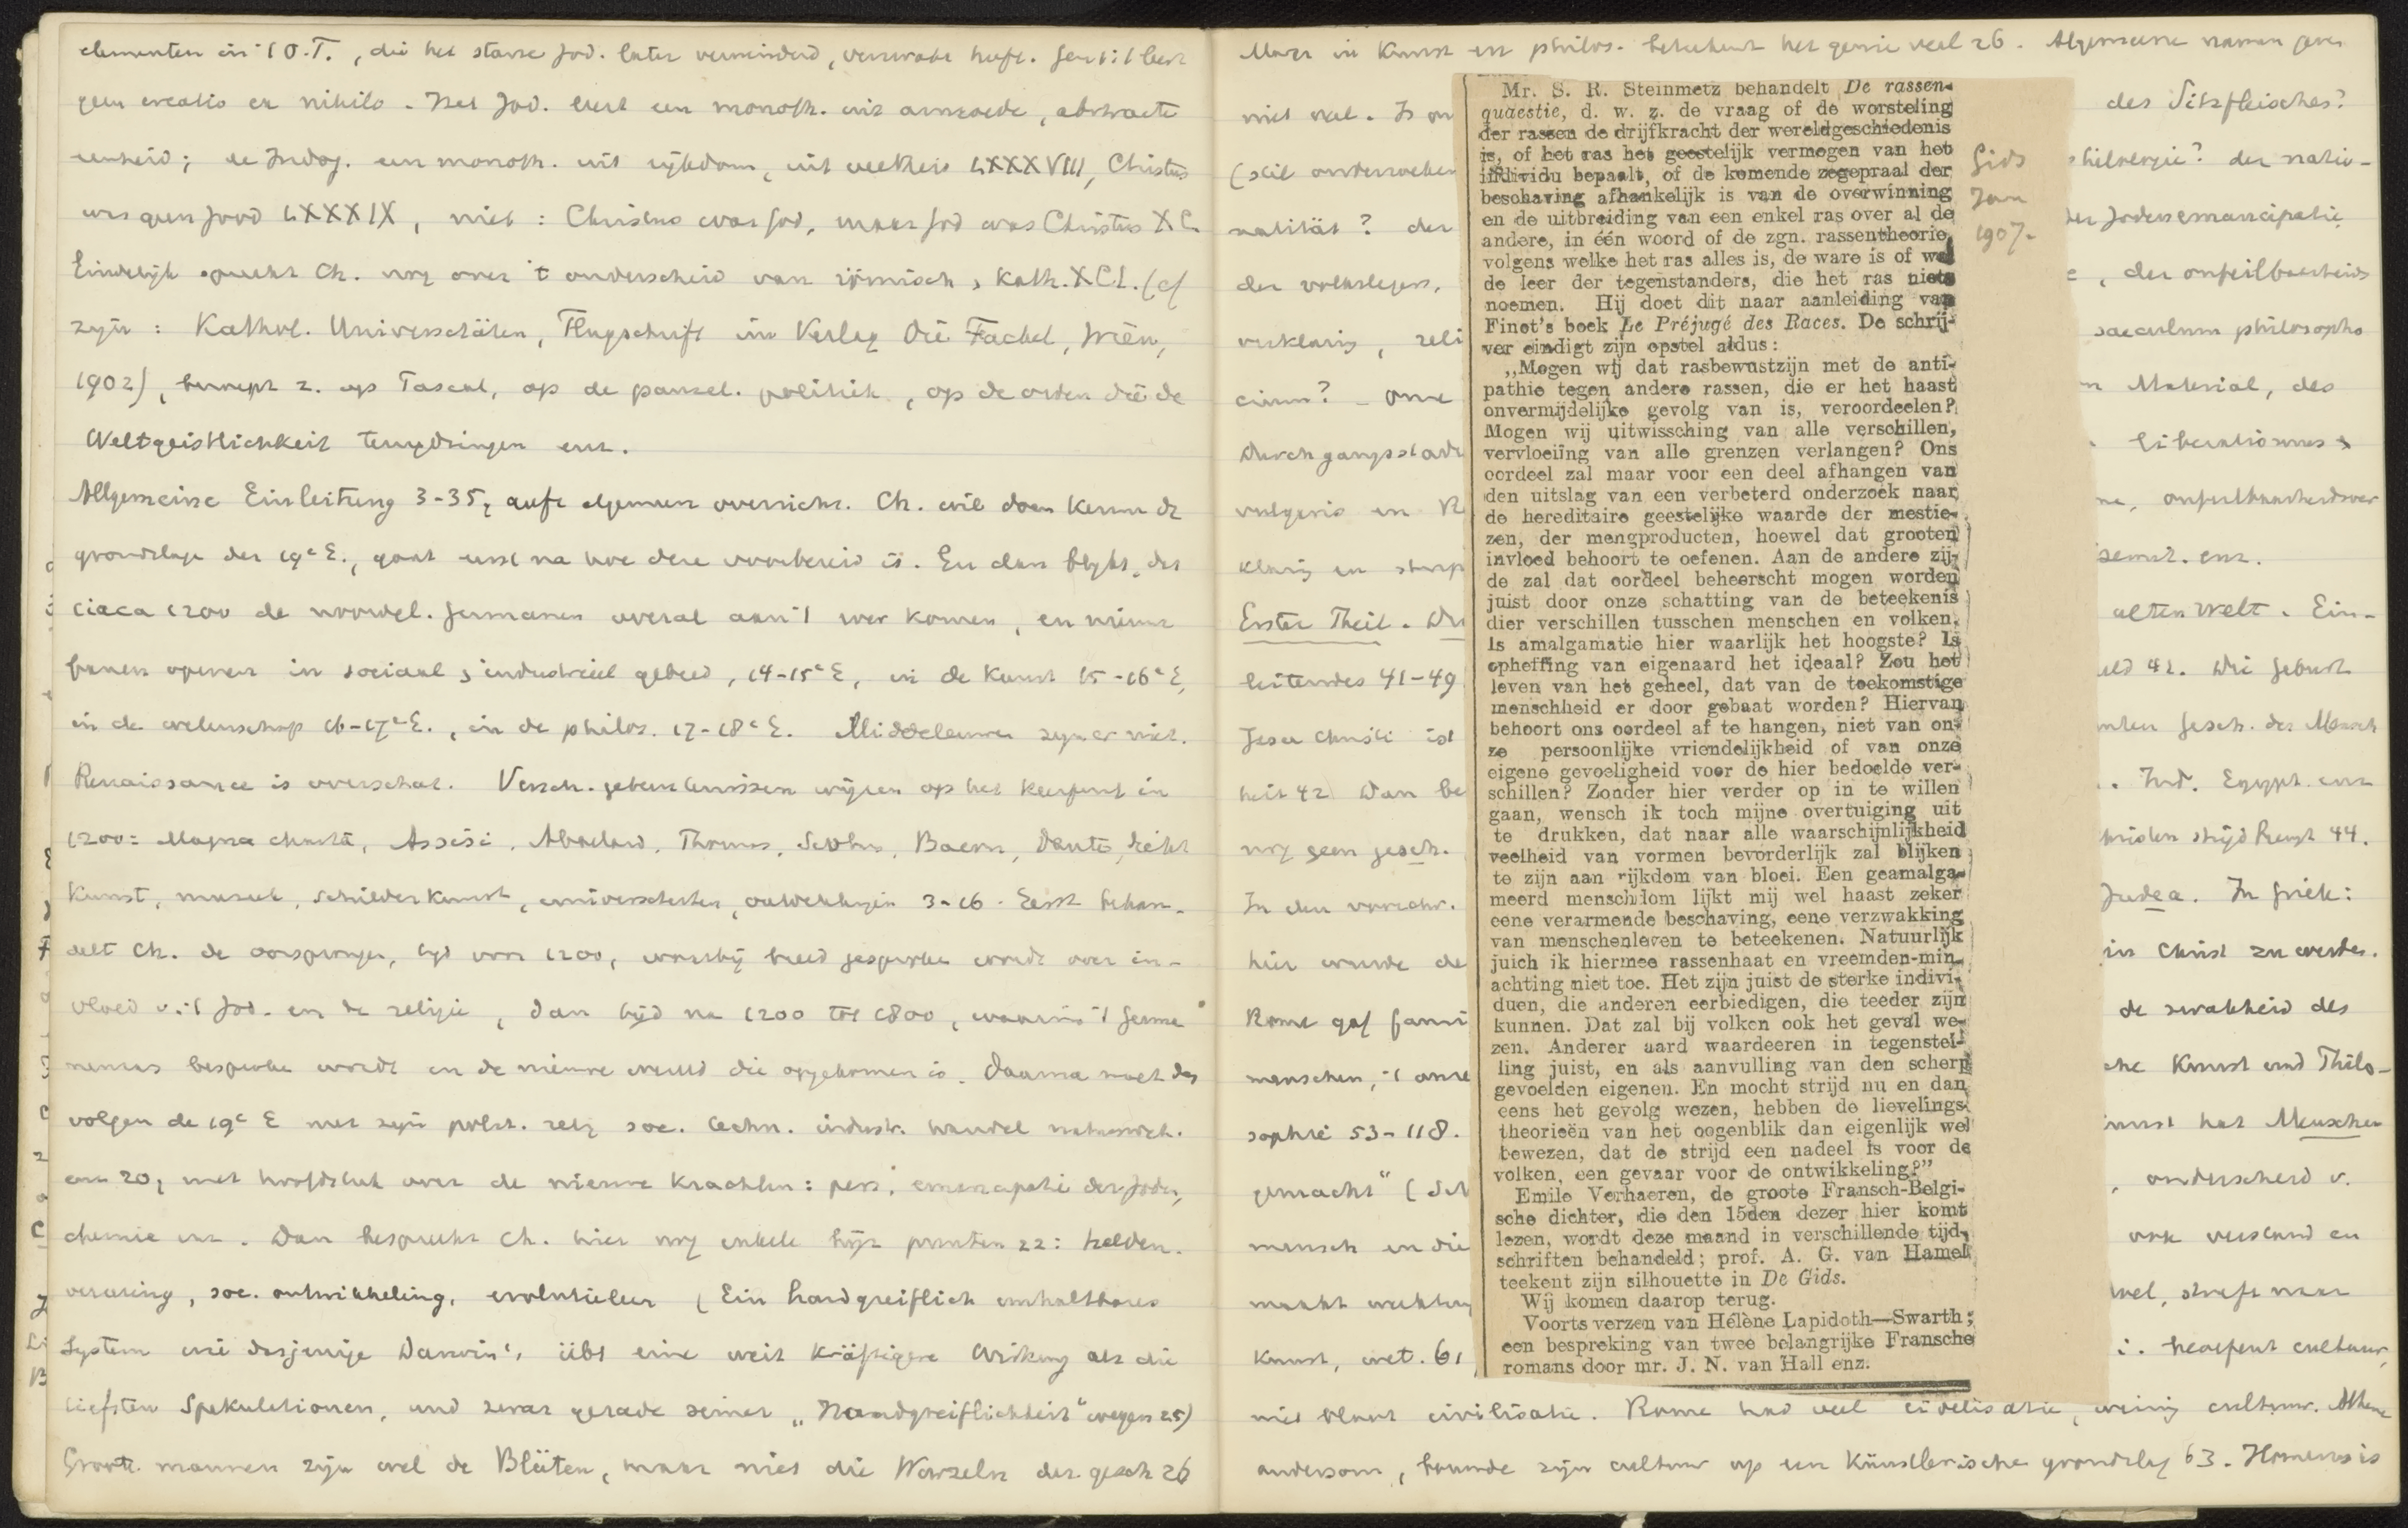 elementen in 't O.T., die het starre Jod. later verminderd, verzwakt heeft. Gen 1:1 leert
geen creatio ex nihilo. Het Jod. leert een monoth. uit armoede, abstracte
eenheid; de Indog. een monoth. uit rijkdom, uit veelheid LXXXVIII, Christus
was geen Jood LXXXIX, niet: Christus was God, maar God was Christus XC
Eindelijk spreekt Ch. nog over 't onderscheid van römisch, Kath. XCI. (cf
zijn: Kathol. Universitäten, Flugschrift im Verlag Die Fackel, Wien,
1902), beroept z. op Pascal, op de pausel. politiek, op de orden die de
Weltgeistlichkeit terugdringen enz.
Allgemeine Einleitung 3-35, geeft algemeen overzicht. Ch. wil doen kennen de
grondslage der 19e E., gaat eerst na hoe deze voorbereid is. En dan blijkt, dat
circa 1200 de noordel. Germanen overal aan 't werk komen, en nieuwe
banen openen in sociaal & industrieel gebied, 14-15e E, in de kunst 15-16e E,
in de wetenschap 16-17e E., in de philos. 17-18e E. Middeleeuwen zijn er niet.
Renaissance is overschat. Versch. gebeurtenissen wijzen op het keerpunt in
1200: Magna charta, Assisi, Abaelard, Thomas, Scotus, Bacon, Dante, dicht
kunst, muziek, schilderkunst, universiteiten, ontdekkingen 3-16. Eerst behan-
delt Ch. de oorsprongen, tijd voor 1200, waarbij breed gesproken wordt over in-
vloed v. 't Jod. en de religie, dan tijd na 1200 tot 1800, waarin 't Germa
nemus besproken wordt en de nieuwe wereld die opgekomen is. Daarna moet dan
volgen de 19e E met zijn polit. relig soc. techn. industr. handel natuurwet.
enz 20, met hoofdstuk over de nieuwe krachten: pers, emancipatie der Joden,
chemie enz. Dan bespreekt Ch. hier nog enkele bijz punten 22: helden-
verering, soc. ontwikkeling, evolutieleer (Ein handgreiflich unhaltbares
System wie dasjenige Darwin's übt eine weit kräftigere Wirkung als die
tiefsten Spekulationen, und zwar gerade seiner „Handgreiflichkeit" wegen 25)
Groote mannen zijn wel de Blüten, maar niet die Wurzeln der gesch 26
Maar in Kunst en philos. beteekent het genie veel 26. Algemeene namen geven
niet veel. Is on
des Sitzfleisches?
(stil onderzoeken
der natio-
nalität? der
der Jodenemancipatie
der volkslegers,
, der onfeilbaarheids
verklaring, reli
saeculum philosopho
cum? - onze
Material, des
Durchgangsstadi
vulgaris en R
klaring en
semit. enz.
Erster Theil. Der
alten Welt. Ein-
leitendes 41-49
42. Die Geburt
Jesu Christi ist
Gesch. der Mensch
heit 42 Dan be
. Ind. Egypt. enz
nog geen gesch.
strijd 44.
In den voorchr.
Judea. In Griek:
hier wurde de
in Christ zu werden.
Rome gaf fami
de zwakheid des
menschen,
Kunst und Philo-
sophie 53-118.
Kunst hat Menschen
gemacht" (Sch
, onderscheid v.
mensch en die
ook verstand en
maakt werktuig
wel, streeft naar
kunst, wet. 61
cultuur,
Mr. S. R. Steinmetz behandelt De rassen-
quaestie, d. w. z. de vraag of de worsteling
der rassen de drijfkracht der wereldgeschiedenis
is, of het ras het geestelijk vermogen van het
individu bepaalt, of de komende zegepraal der
beschaving afhankelijk is van de overwinning
en de uitbreiding van een enkel ras over al de
andere, in één woord of de zgn. rassentheorie,
volgens welke het ras alles is, de ware is of wel
de leer der tegenstanders, die het ras niets
noemen. Hij doet dit naar aanleiding van
Finot's boek Le Préjugé des Races. De schrij-
ver eindigt zijn opstel aldus:
„Mogen wij dat rasbewustzijn met de anti-
pathie tegen andere rassen, die er het haast
onvermijdelijke gevolg van is, veroordeelen?
Mogen wij uitwissching van alle verschillen,
vervloeiïng van alle grenzen verlangen? Ons
oordeel zal maar voor een deel afhangen van
den uitslag van een verbeterd onderzoek naar
de hereditaire geestelijke waarde der mestie-
zen, der mengproducten, hoewel dat grooten
invloed behoort te oefenen. Aan de andere zij-
de zal dat oordeel beheerscht mogen worden
juist door onze schatting van de beteekenis
dier verschillen tusschen menschen en volken.
Is amalgamatie hier waarlijk het hoogste? Is
opheffing van eigenaard het ideaal? Zou het
leven van het geheel, dat van de toekomstige
menschheid er door gebaat worden? Hiervan
behoort ons oordeel af te hangen, niet van on-
ze persoonlijke vriendelijkheid of van onze
eigene gevoeligheid voor de hier bedoelde ver-
schillen? Zonder hier verder op in te willen
gaan, wensch ik toch mijne overtuiging uit
te drukken, dat naar alle waarschijnlijkheid
veelheid van vormen bevorderlijk zal blijken
te zijn aan rijkdom van bloei. Een geamalga-
meerd menschdom lijkt mij wel haast zeker
eene verarmende beschaving, eene verzwakking
van menschenleven te beteekenen. Natuurlijk
juich ik hiermee rassenhaat en vreemden-min-
achting niet toe. Het zijn juist de sterke indivi-
duen, die anderen eerbiedigen, die teeder zijn
kunnen. Dat zal bij volken ook het geval we-
zen. Anderer aard waardeeren in tegenstel-
ling juist, en als aanvulling van den scherp
gevoelden eigenen. En mocht strijd nu en dan
eens het gevolg wezen, hebben de lievelings-
theorieën van het oogenblik dan eigenlijk wel
bewezen, dat de strijd een nadeel is voor de
volken, een gevaar voor de ontwikkeling?"
Emile Verhaeren, de groote Fransch-Belgi-
sche dichter, die den 15den dezer hier komt
lezen, wordt deze maand in verschillende tijd-
schriften behandeld; prof. A. G. van Hamel
teekent zijn silhouette in De Gids.
Wij komen daarop terug.
Voorts verzen van Hélène Lapidoth—Swarth;
een bespreking van twee belangrijke Fransche
romans door mr. J. N. van Hall enz.
Gids
Jan
1907.
niet slaat civilisatie. Rome had veel civilisatie, weinig cultuur. Athene
andersom, bouwde zijn cultuur op een künstlerische grondslag 63. Homerus is